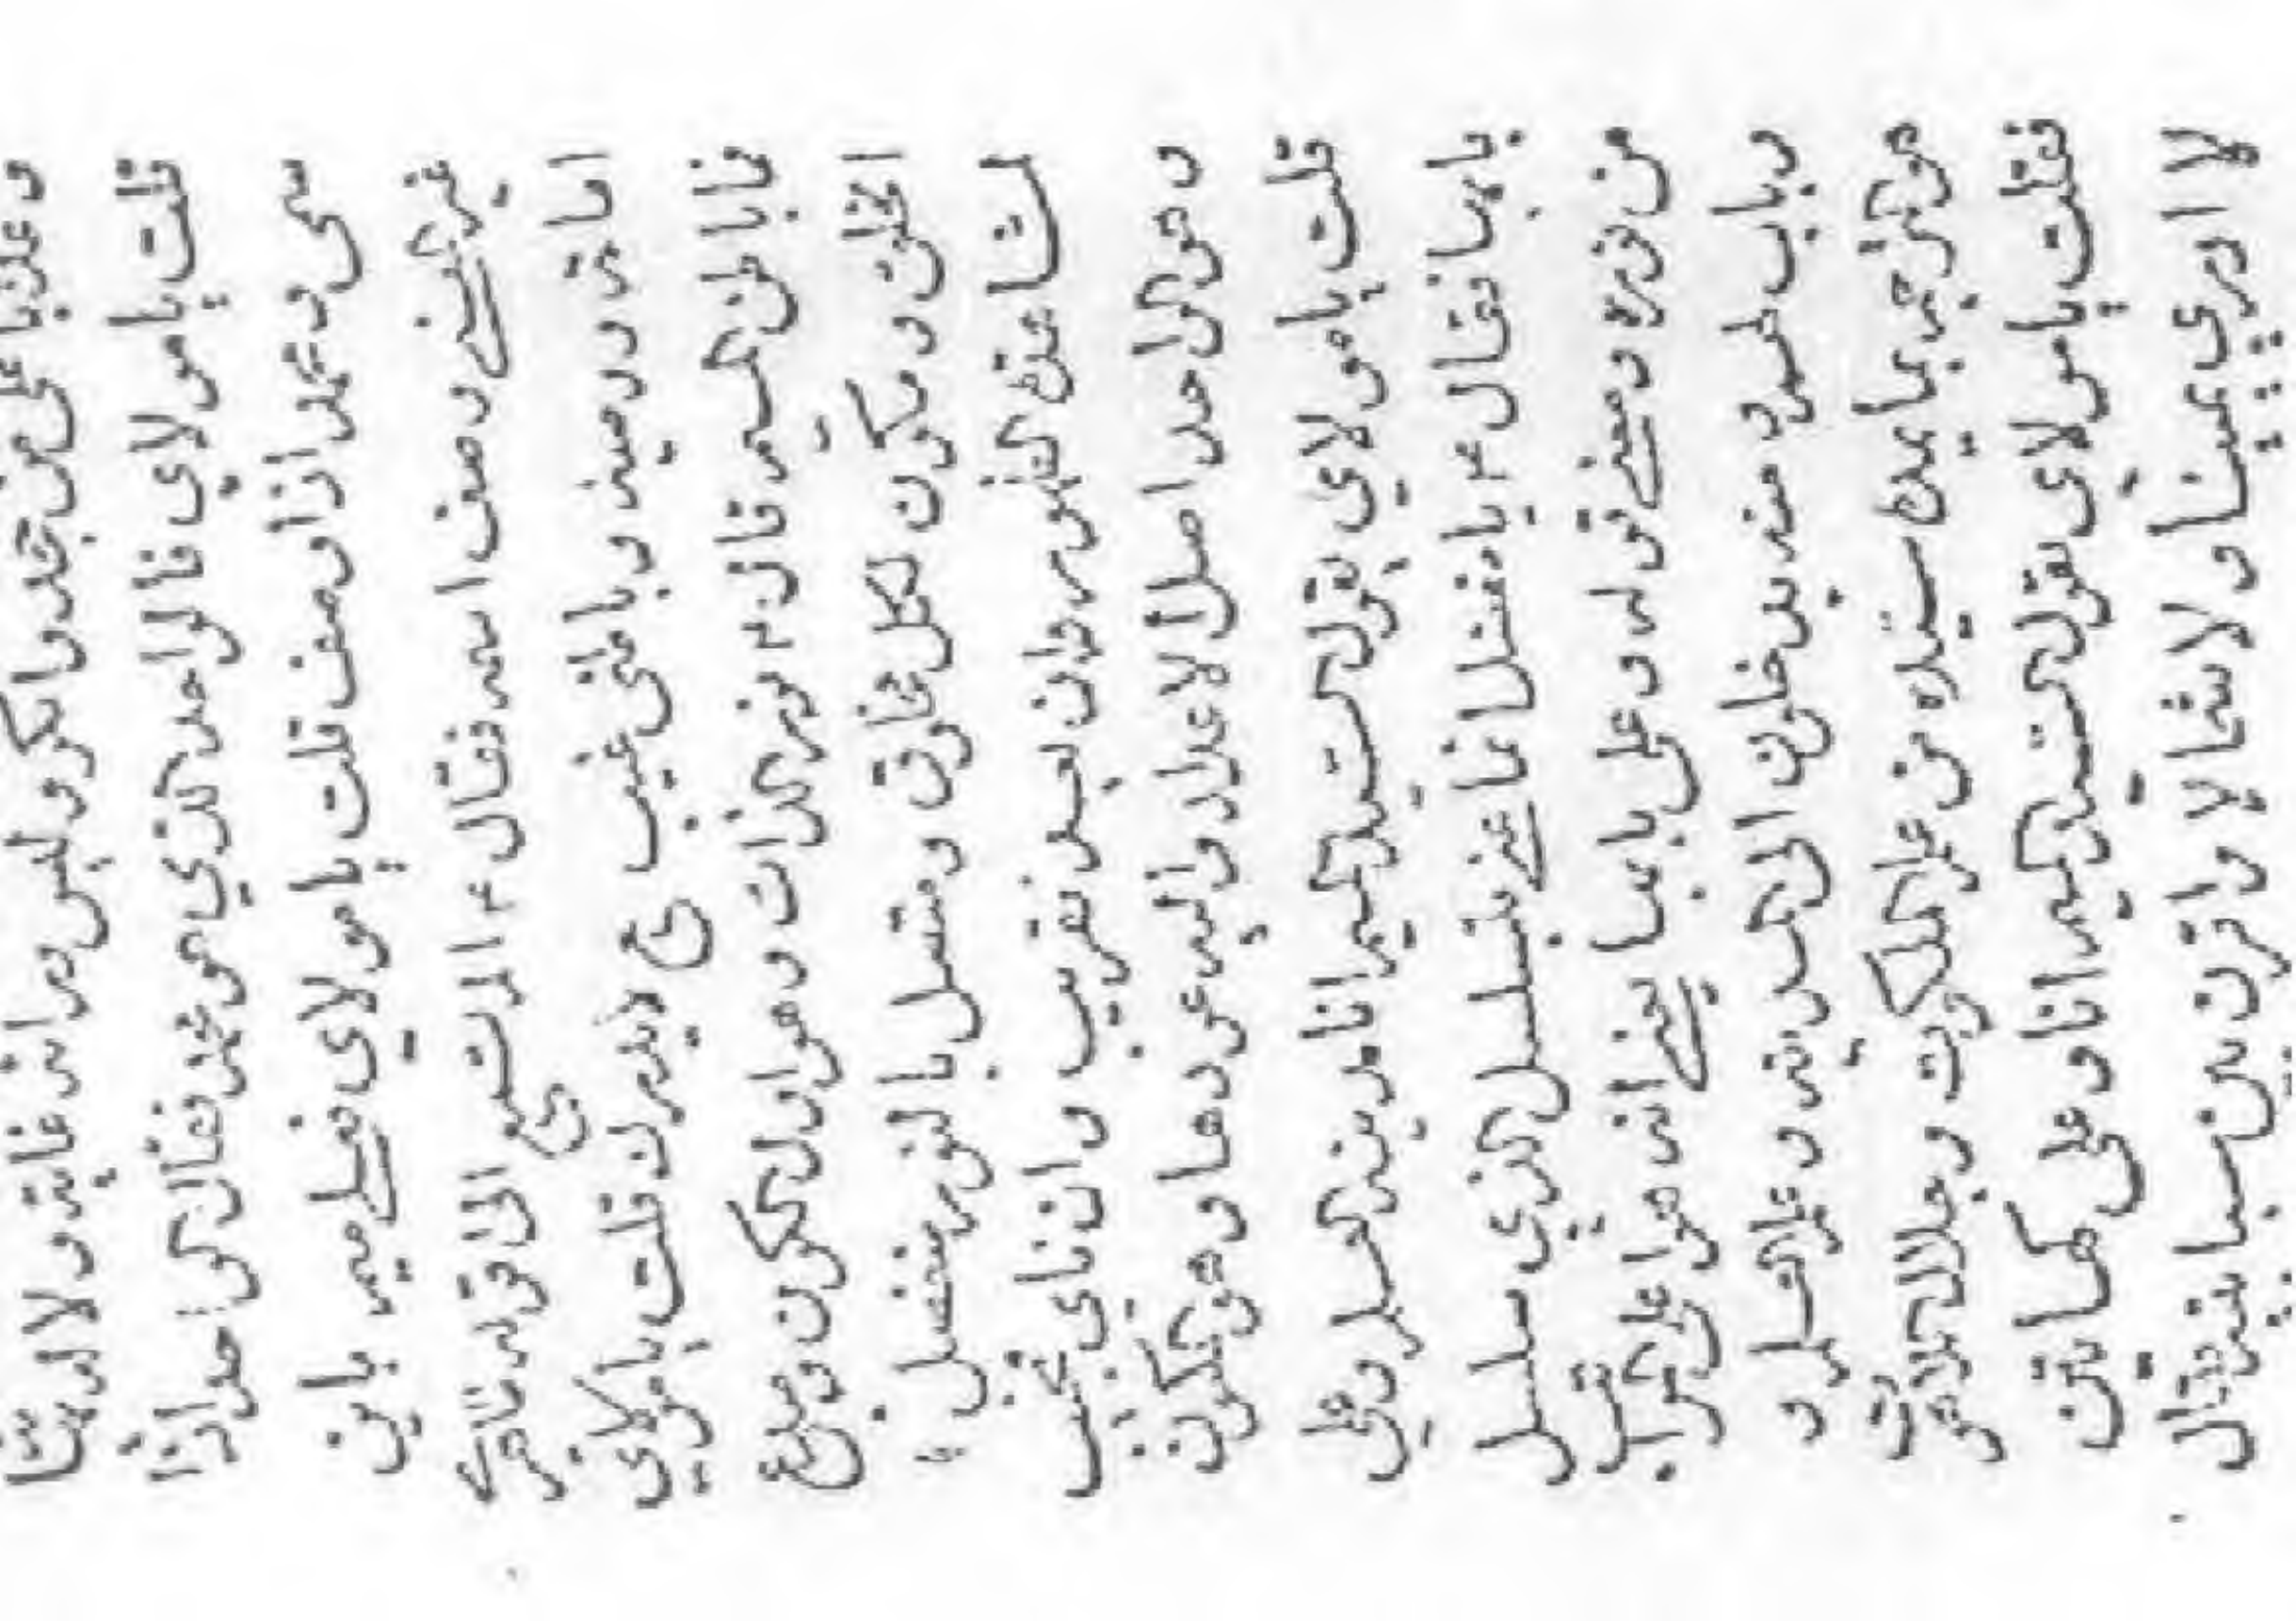 قلت يا مولاي فالواحد الذي هو محمد فقال الواحد اذا
سمي ومحمد اذا وصف قلت يا مولاي فعلي ميم
غير المعنى وصف اسمه فقال ع الم تسمع الى قوله ظاهري
امامة ووصية وباطني غيب منيع لا يدرك قلت يا مولاي
فما باطن الميم قال ع نور الذات وهو اول الكون ومبدع
الخلق ومكون لكل مخلوق ومتصل بالنور منفصل
لمشاهدة الظهور وان بعد فقريب وان ناى فمجيب
وهو الواحد اصل الاعداد واليه عودها وهو المكون
قلت يا مولاي يقول السيد الميم انا مدينة العلم وعلي
بابها فقال ع يا مفضل انما عنى بتسلسل الذي سلسل
من نوره ومعنى قوله وعلي بابها يعني انه هو اعلى المراتب
وباب الميم ومنه يدخلون الى المدينة وعلم العلم و
هو المترجم بما يمده سيده من علم الملكوت وجلال اللاهوت
فقلت يا مولاي يقول السيد الميم انا وعلي كهاتين
لا ادري يمينا ولا شمالا واقرن بين سبابتيه قال